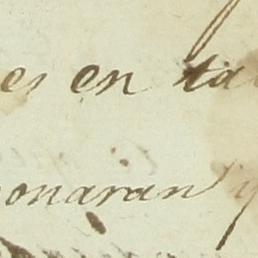 es en ta
onaran y